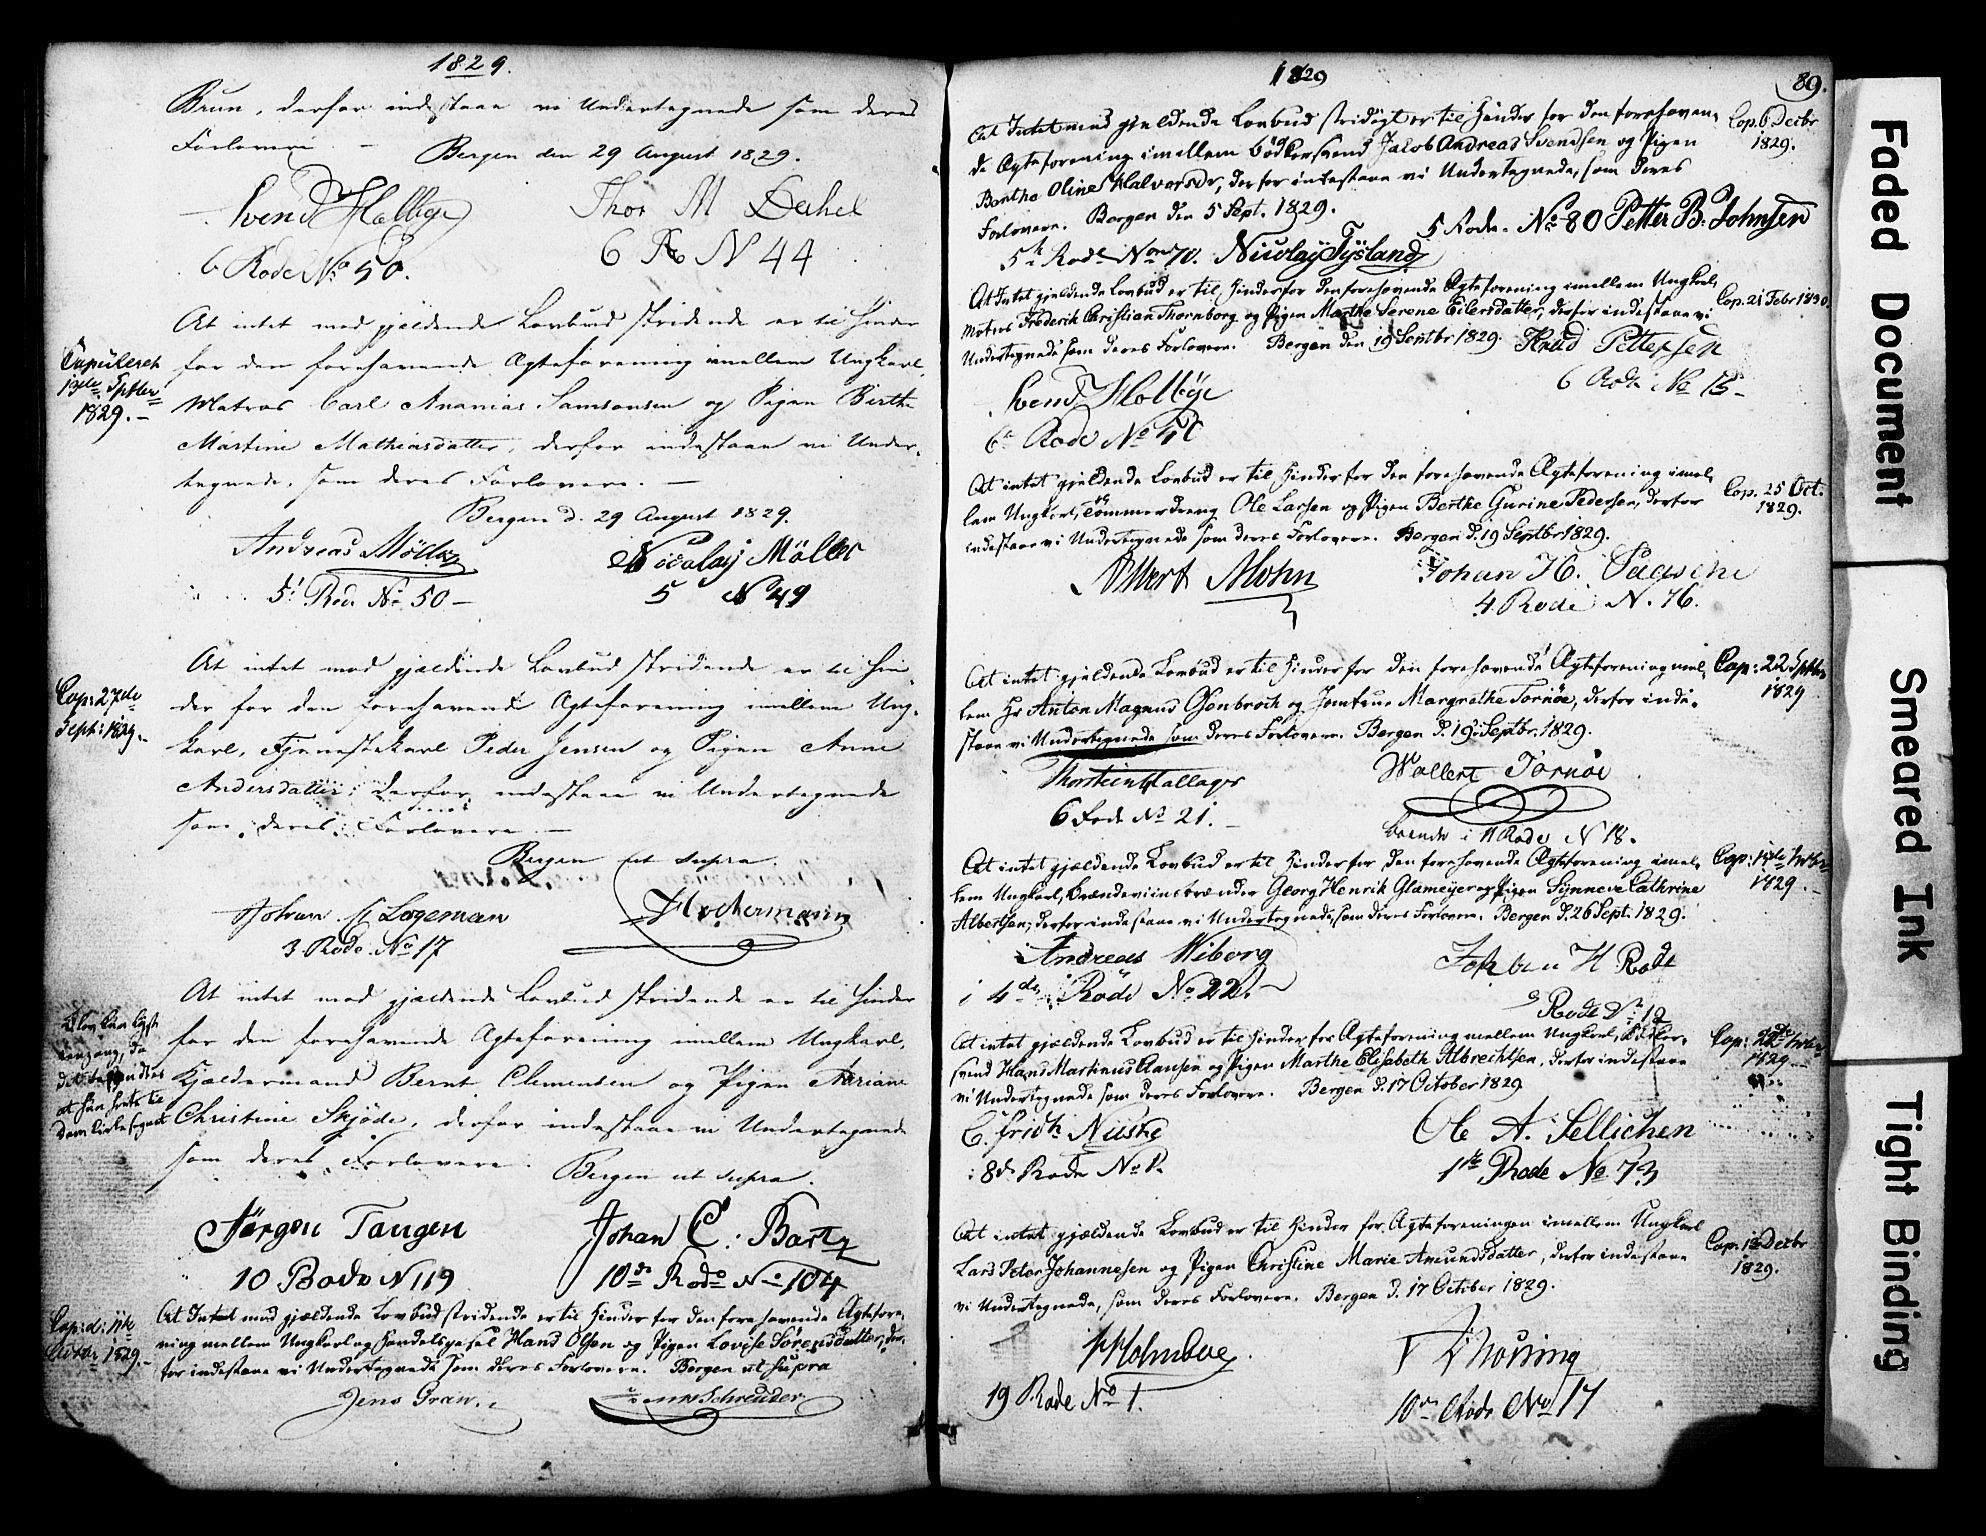 1829.
Brun, derfor indestaae vi Undertegnede som deres
Forlovere. –
Bergen den 29 August 1829.
Svend Holbye Thor M
6 Rode No 50. 6 R N 44
At intet mod gjældende Lovbud stridende er til Hinder
for den forehavende Ægteforening imellem Ungkarl,
Matros Carl Ananias Samsonsen og Pigen Birthe
Martine Mathiasdatter, derfor indestaae vi Under-
tegnede, som deres Forlovere. –
Bergen d. 29 August 1829.
Copuleret
13de Septbr
1829. –
Andreas Möller Nicolay Möller
5 Rode No 50 – 5 N 49
At intet mod gjældende Lovbud stridende er til Hin-
der for den forehavende Ægteforening imellem Ung-
karl, Tjenestekarl Peder Jensen og Pigen Anne
Andersdatter, derfor indestaae vi Undertegnede
som deres Forlovere. –
Bergen ut supra.
Cop: 27de
Sept: 1829. –
Johan Logeman Hockermann
3 Rode No 17
At intet mod gjældende Lovbud stridende er til Hinder
for den forehavende Ægteforening imellem Ungkarl,
Kjældermand Bernt Clemensen og Pigen Adriane
Christine Skjöde, derfor indestaae vi Undertegnede
som deres Forlovere.
Bergen ut supra.
Jörgen Tangen Johan C: Bartz
10 Rode N 119 10de Rode No 104
At Intet mod gjældende Lovbud stridende er til Hinder for den forehavende Ægtefore-
ning mellem Ungkarl og Handelsgesel Hans Olsen og Pigen Lovise Sörensdatter, der-
for indestaae vi Undertegnede som deres Forlovere. Bergen ut supra
Cop: d: 11te
Octbr 1829. –
Jens Gran. Schreuder
1829
89.
At Intet mod gjældende Lovbud stridigt er til Hinder for den forehaven-
de Ægteforening imellem Bödkersvend Jacob Andreas Svendsen og Pigen
Berthe Oline Halvorsdr, derfor indestaae vi Undertegnede, som deres
Forlovere. Bergen den 5 Sept. 1829.
Cop. 6 Decbr
1829.
5 Rode. No 80 Petter B. Johnsen
5te Rode No 70. Nicolay Tysland
At Intet gjældende Lovbud er til Hinder for den forehavende Ægteforening imellem Ungkarl,
Matros Frederik Christian Thornborg og Pigen Marthe Serene Eilersdatter, derfor indestaae vi
Undertegnede som deres Forlovere. Bergen den 19 Septbr 1829.
Cop. 21 Febr 1830
Knud Pettersen
6 Rode No 15 –
Svend Holbye
6 Rode No 50
At intet gjældende Lovbud er til Hinder for den forehavende Ægteforening imel-
lem Ungkarl, Tömmerdreng Ole Larsen og Pigen Berthe Gurine Pedersen, derfor
indestaae vi Undertegnede som deres Forlovere. Bergen d. 19 Septbr 1829.
Cop. 25 Oct.
1829.
Albert Mohn Johan H.
4 Rode N. 76.
At intet gjældende Lovbud er til Hinder for den forehavende Ægteforening imel-
lem Hr Anton Magnus Osenbroch og Jomfrue Margrethe Tornöe, derfor inde-
staae vi Undertegnede som deres Forlovere. Bergen d. 19 Septbr. 1829.
Cop: 22 Septbr
1829
Thorstein Hallager Wollert Tornöe
6 Rode No 21. – boende i 11 Rode N 18.
At intet gjældende Lovbud er til Hinder for den forehavende Ægteforening imel-
lem Ungkarl, Brændeviinsbrænder Georg Henrik Glameyer og Pigen Synneve Cathrine
Albertsen, derfor indestaae vi Undertegnede, som deres Forlovere. Bergen d. 26 Sept. 1829.
1829. –
Andreas Wiborg H Rode
i 4de Rode No 22. – Rode No 12
At intet gjældende Lovbud er til Hinder for Ægteforening mellem Ungkarl, Bödker-
svend Hans Martinus Clausen og Pigen Marthe Elisabeth Albrechtsen, derfor indestaae
vi Undertegnede som deres Forlovere. Bergen d. 17 October 1829
1829. –
C. Fridk Nüske Ole A. Sellichen
8de Rode No 1ste Rode No 73
At intet gjældende Lovbud er til Hinder for Ægteforeningen imellem Ungkarl
Lars Peter Johannesen og Pigen Christine Marie Amundsdatter, derfor indestaae
vi Undertegnede, som deres Forlovere. Bergen d. 17 October 1829.
Cop. 13 Decbr
1829.
Holmboe
19 Rode No 1. 10de Rode No 17
Faded Document
Smeared Ink
Tight Binding